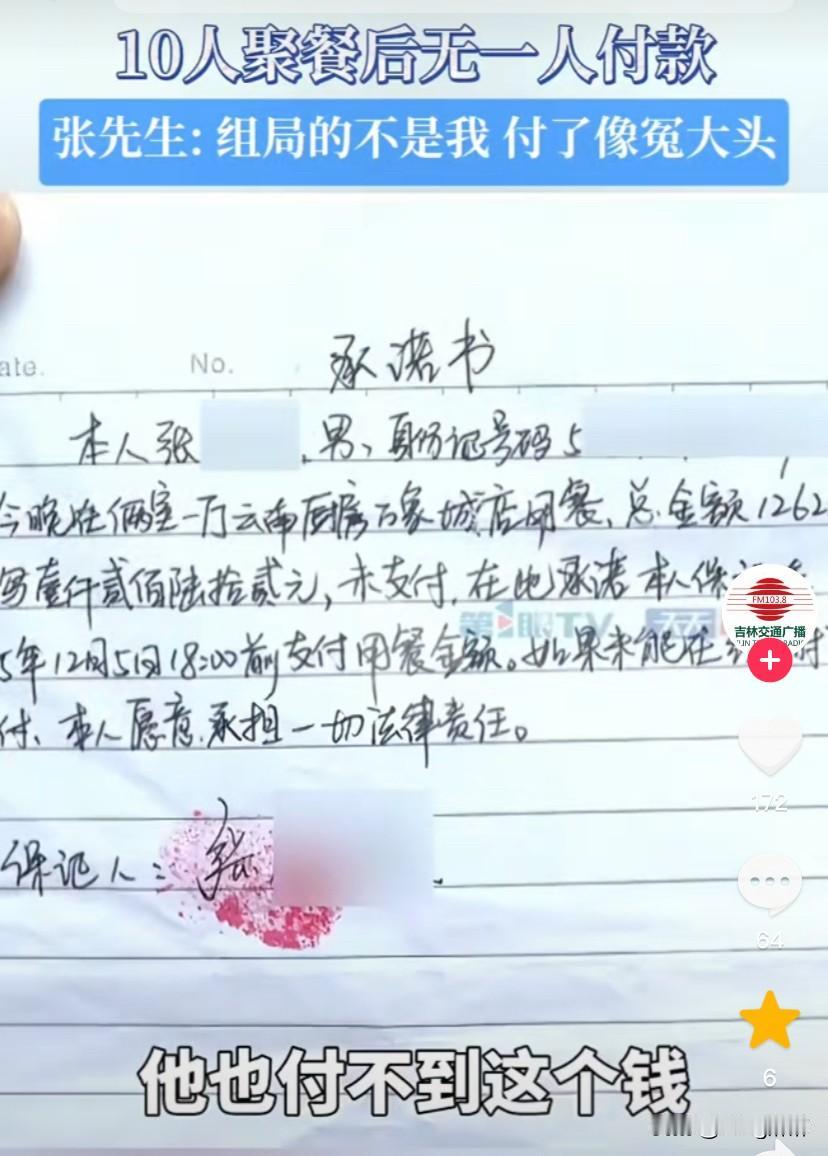 10人聚餐后无一人付款
张先生: 组局的不是我 付了像冤大头
ate.
No.
承诺书
本人张 , 男、身份证号码5
今晚在俩室一厅云南厨房万象城店用餐、总金额1262
写壹仟贰佰陆拾贰元, 未支付, 在此承诺本人保
第1眼TV
5年12月5日18:00前支付用餐金额。如果未能在
付、本人愿意承担一切法律责任。
保证人: 张
FM103.8
吉林交通广播
172
64
6
他也付不到这个钱